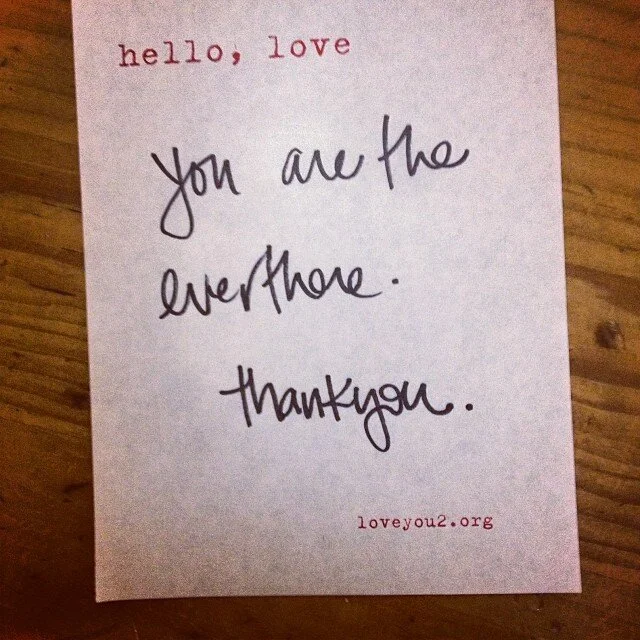 hello, love
you are the
everthere.
thankyou.
loveyou2.org